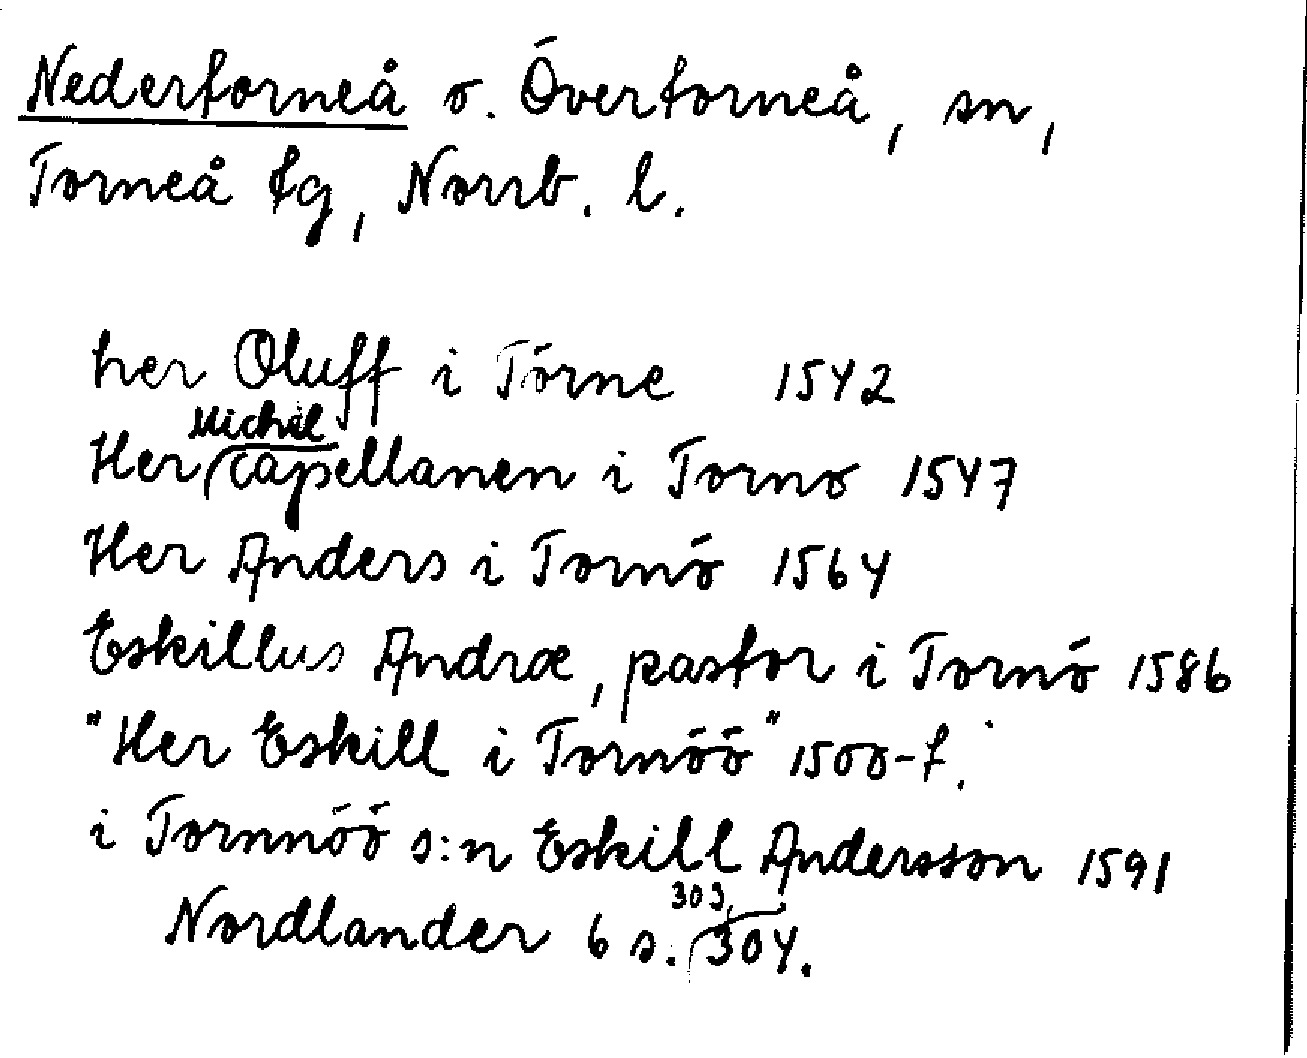 Nedertorneå o. Övertorneå, sn,
Torneå tg, Norrb. l.
her Oluff i Törne 1542
Her Michel capellanen i Torno 1547
Her Anders i Tornö 1564
Eskillus Andræ, pastor i Tornö 1586
"Her Eskill i Tornöö" 1500-t.
i Tornnöö s:n Eskill Andersson 1591
Nordlander 6 s. 303, 304.